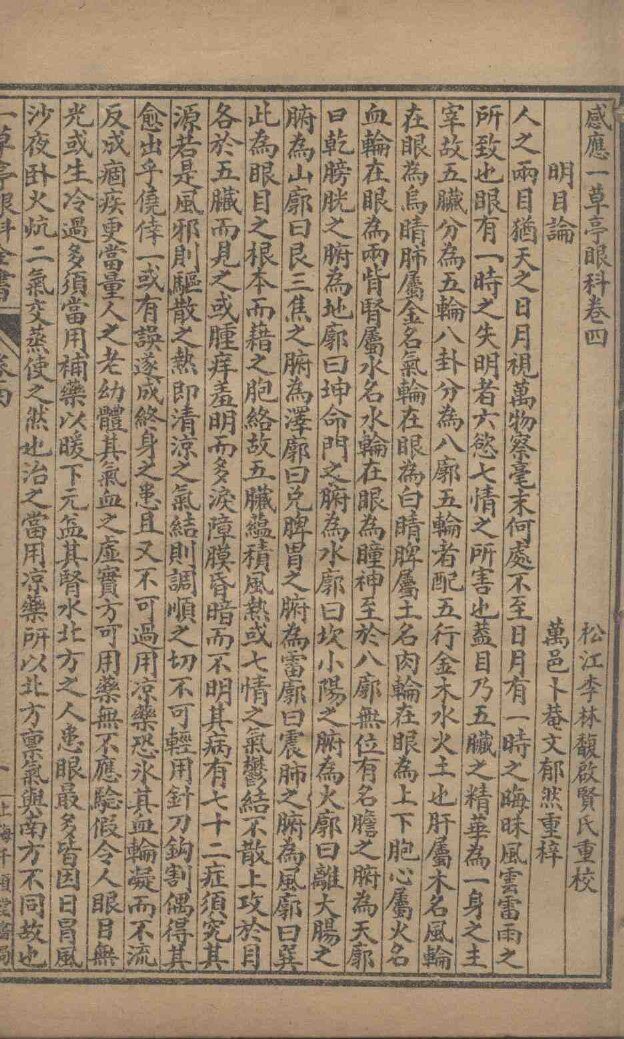 感應一草亭眼科卷四
松江李林馥啟賢氏重校
明目論
萬邑卜菴文郁然重梓
人之兩目猶天之日月視萬物察毫末何處不至日月有一時之晦昧風雲雷雨之
所致也眼有一時之失明者六慾七情之所害也蓋目乃五臟之精華為一身之主
宰故五臟分為五輪八卦分為八廓五輪者配五行金木水火土也肝屬木名風輪
在眼為烏睛肺屬金名氣輪在眼為白睛脾屬土名肉輪在眼為上下胞心屬火名
血輪在眼為兩眥腎屬水名水輪在眼為瞳神至於八廓無位有名膽之腑為天廓
曰乾膀胱之腑為地廓曰坤命門之腑為水廓曰坎小腸之腑為火廓曰離大腸之
腑為山廓曰艮三焦之腑為澤廓曰兌脾胃之腑為雷廓曰震肺之腑為風廓曰巽
此為眼目之根本而藉之胞絡故五臟蘊積風熱或七情之氣鬱結不散上攻於目
各於五臟而見之或腫痒羞明而多淚障膜昏暗而不明其病有七十二症須究其
源若是風邪則驅散之熱即清涼之氣結則調順之切不可輕用針刀鈎割偶得其
愈出乎僥倖一或有誤遂成終身之患且又不可過用凉藥恐氷其血輪凝而不流
反成痼疾更當量人之老幼體其氣血之虛實方可用藥無不應驗假令人眼目無
光或生冷過多須當用補藥以暖下元益其腎水北方之人患眼最多皆因日冒風
沙夜卧火炕二氣交蒸使之然也治之當用凉藥所以北方稟氣與南方不同故也
一草亭眼科全書
卷四
一
上海千頃堂書局